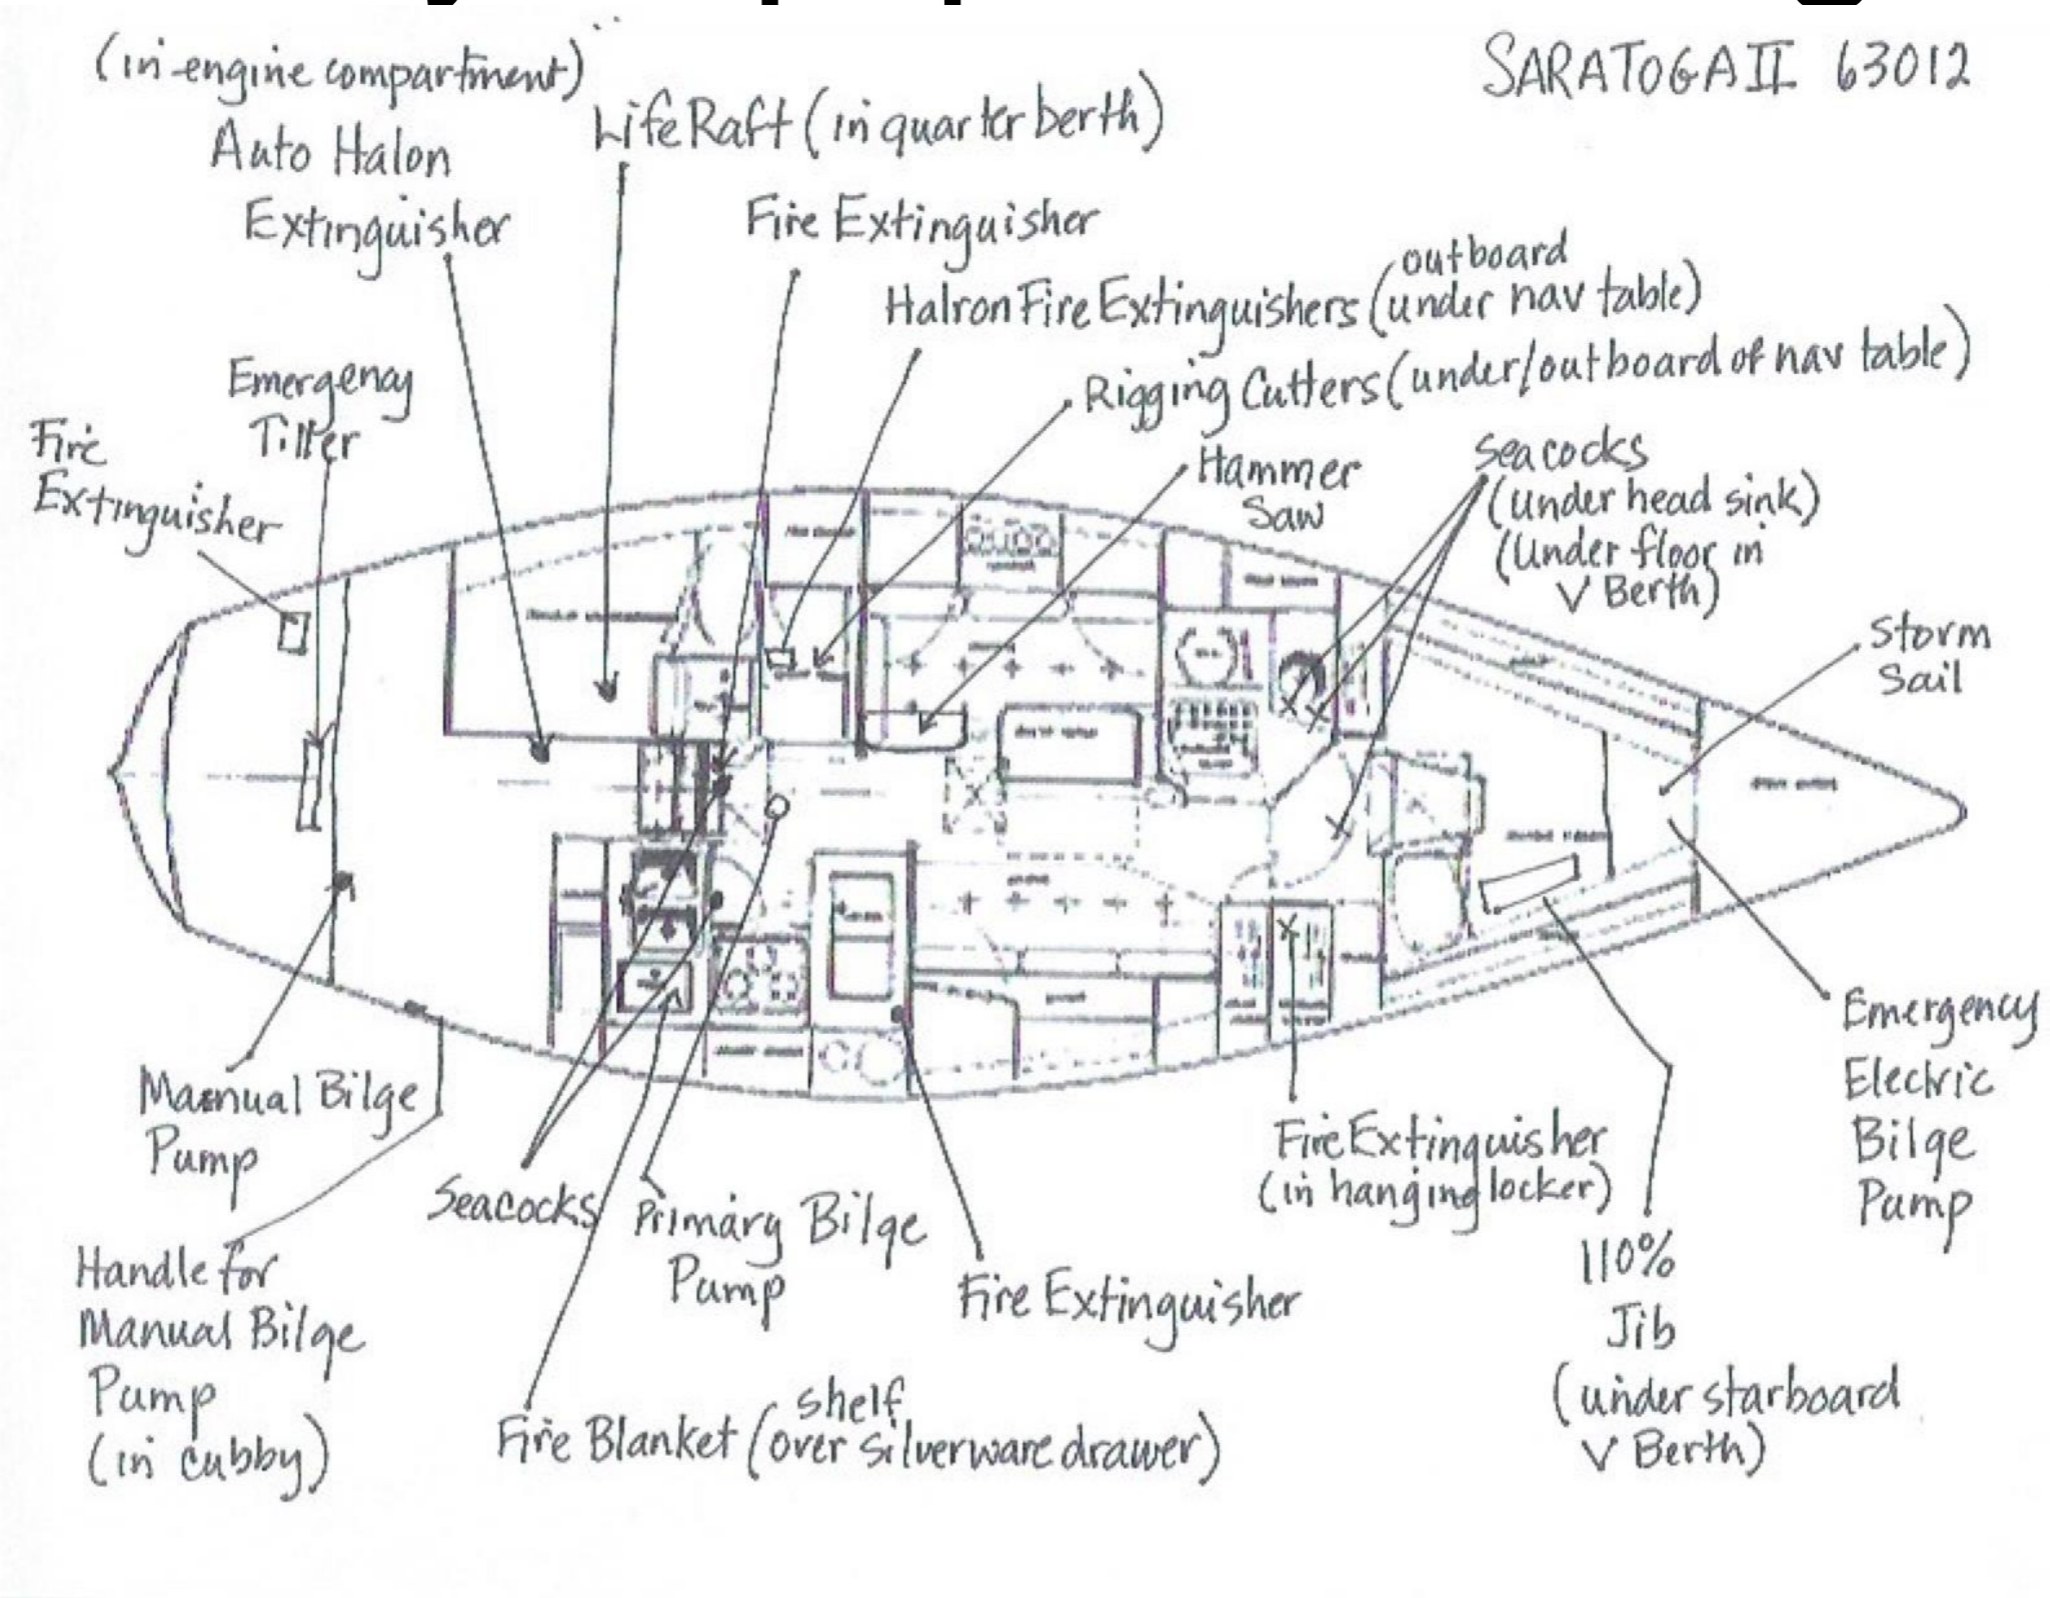 SARATOGA II 63012
(in engine compartment)
Auto Halon
Extinguisher
Life Raft (in quarter berth)
Fire Extinguisher
Halron Fire Extinguishers (outboard
under nav table)
Rigging Cutters (under/outboard of nav table)
Emergency
Tiller
Fire
Extinguisher
Hammer
Saw
Seacocks
(under head sink)
(Under floor in
V Berth)
Storm
Sail
Manual Bilge
Pump
Handle for
Manual Bilge
Pump
(in cubby)
Seacocks
Primary Bilge
Pump
Fire Blanket (shelf
over silverware drawer)
Fire Extinguisher
Fire Extinguisher
(in hanging locker)
110%
Jib
(under starboard
V Berth)
Emergency
Electric
Bilge
Pump